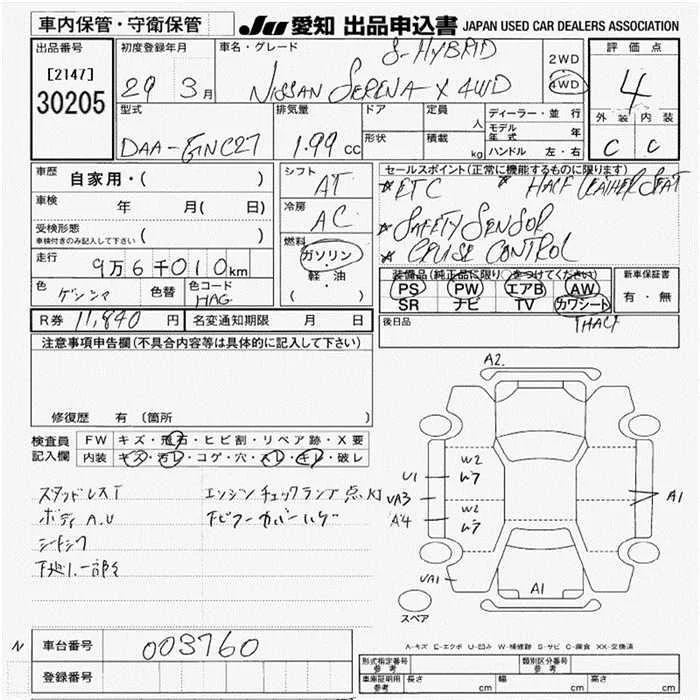 車内保管・守衛保管
JU 愛知 出品申込書 JAPAN USED CAR DEALERS ASSOCIATION
出品番号
[2147]
30205
初度登録年月
29 3月
車名・グレード
S-HYBRID
NISSAN SERENA X 4WD
2WD
4WD
評価点
4
外装 内装
C C
型式
DAA-GNC27
排気量
1.99 cc
ドア
形状
定員 人
積載 kg
ディーラー・並行
モデル年式 年
ハンドル 左・右
車歴 自家用・( )
車検 年 月( 日)
受検形態
車検付きのみ記入して下さい ( )
走行 9万6千010km
色
色替
色コード
HAG
シフト
AT
冷房
AC
燃料
ガソリン
・
軽・油
( )
セールスポイント(正常に機能するものに限ります)
★ETC ★HALF LEATHER SEAT
★SAFETY SENSOR
★CRUISE CONTROL
装備品(純正品に限り○をつけてください)
PS PW エアB AW
SR ナビ TV カワシート
HALF
新車保証書
有・無
R券 11,840 円
名変通知期限 月 日
後日品
注意事項申告欄(不具合内容等は具体的に記入して下さい)
修復歴 有 〔箇所 〕
検査員記入欄
FW キズ・飛石・ヒビ割・リペア跡・X要
内装 キズ・汚レ・コゲ・穴・スレ・キレ・破レ
スタッドレスT エンジンチェックランプ点灯
ボディ A.U
A2.
U1
UA3
A4
W2
ムラ
W2
ムラ
A1
UA1
A1
スペア
A-キズ E-エクボ U-凹み W-補修跡 S-サビ C-腐食 XX-交換済
N
車台番号 003760
登録番号
形式指定番号 参考
類別区分番号 参考
車庫証明用 参考 長さ cm 幅 cm 高さ cm